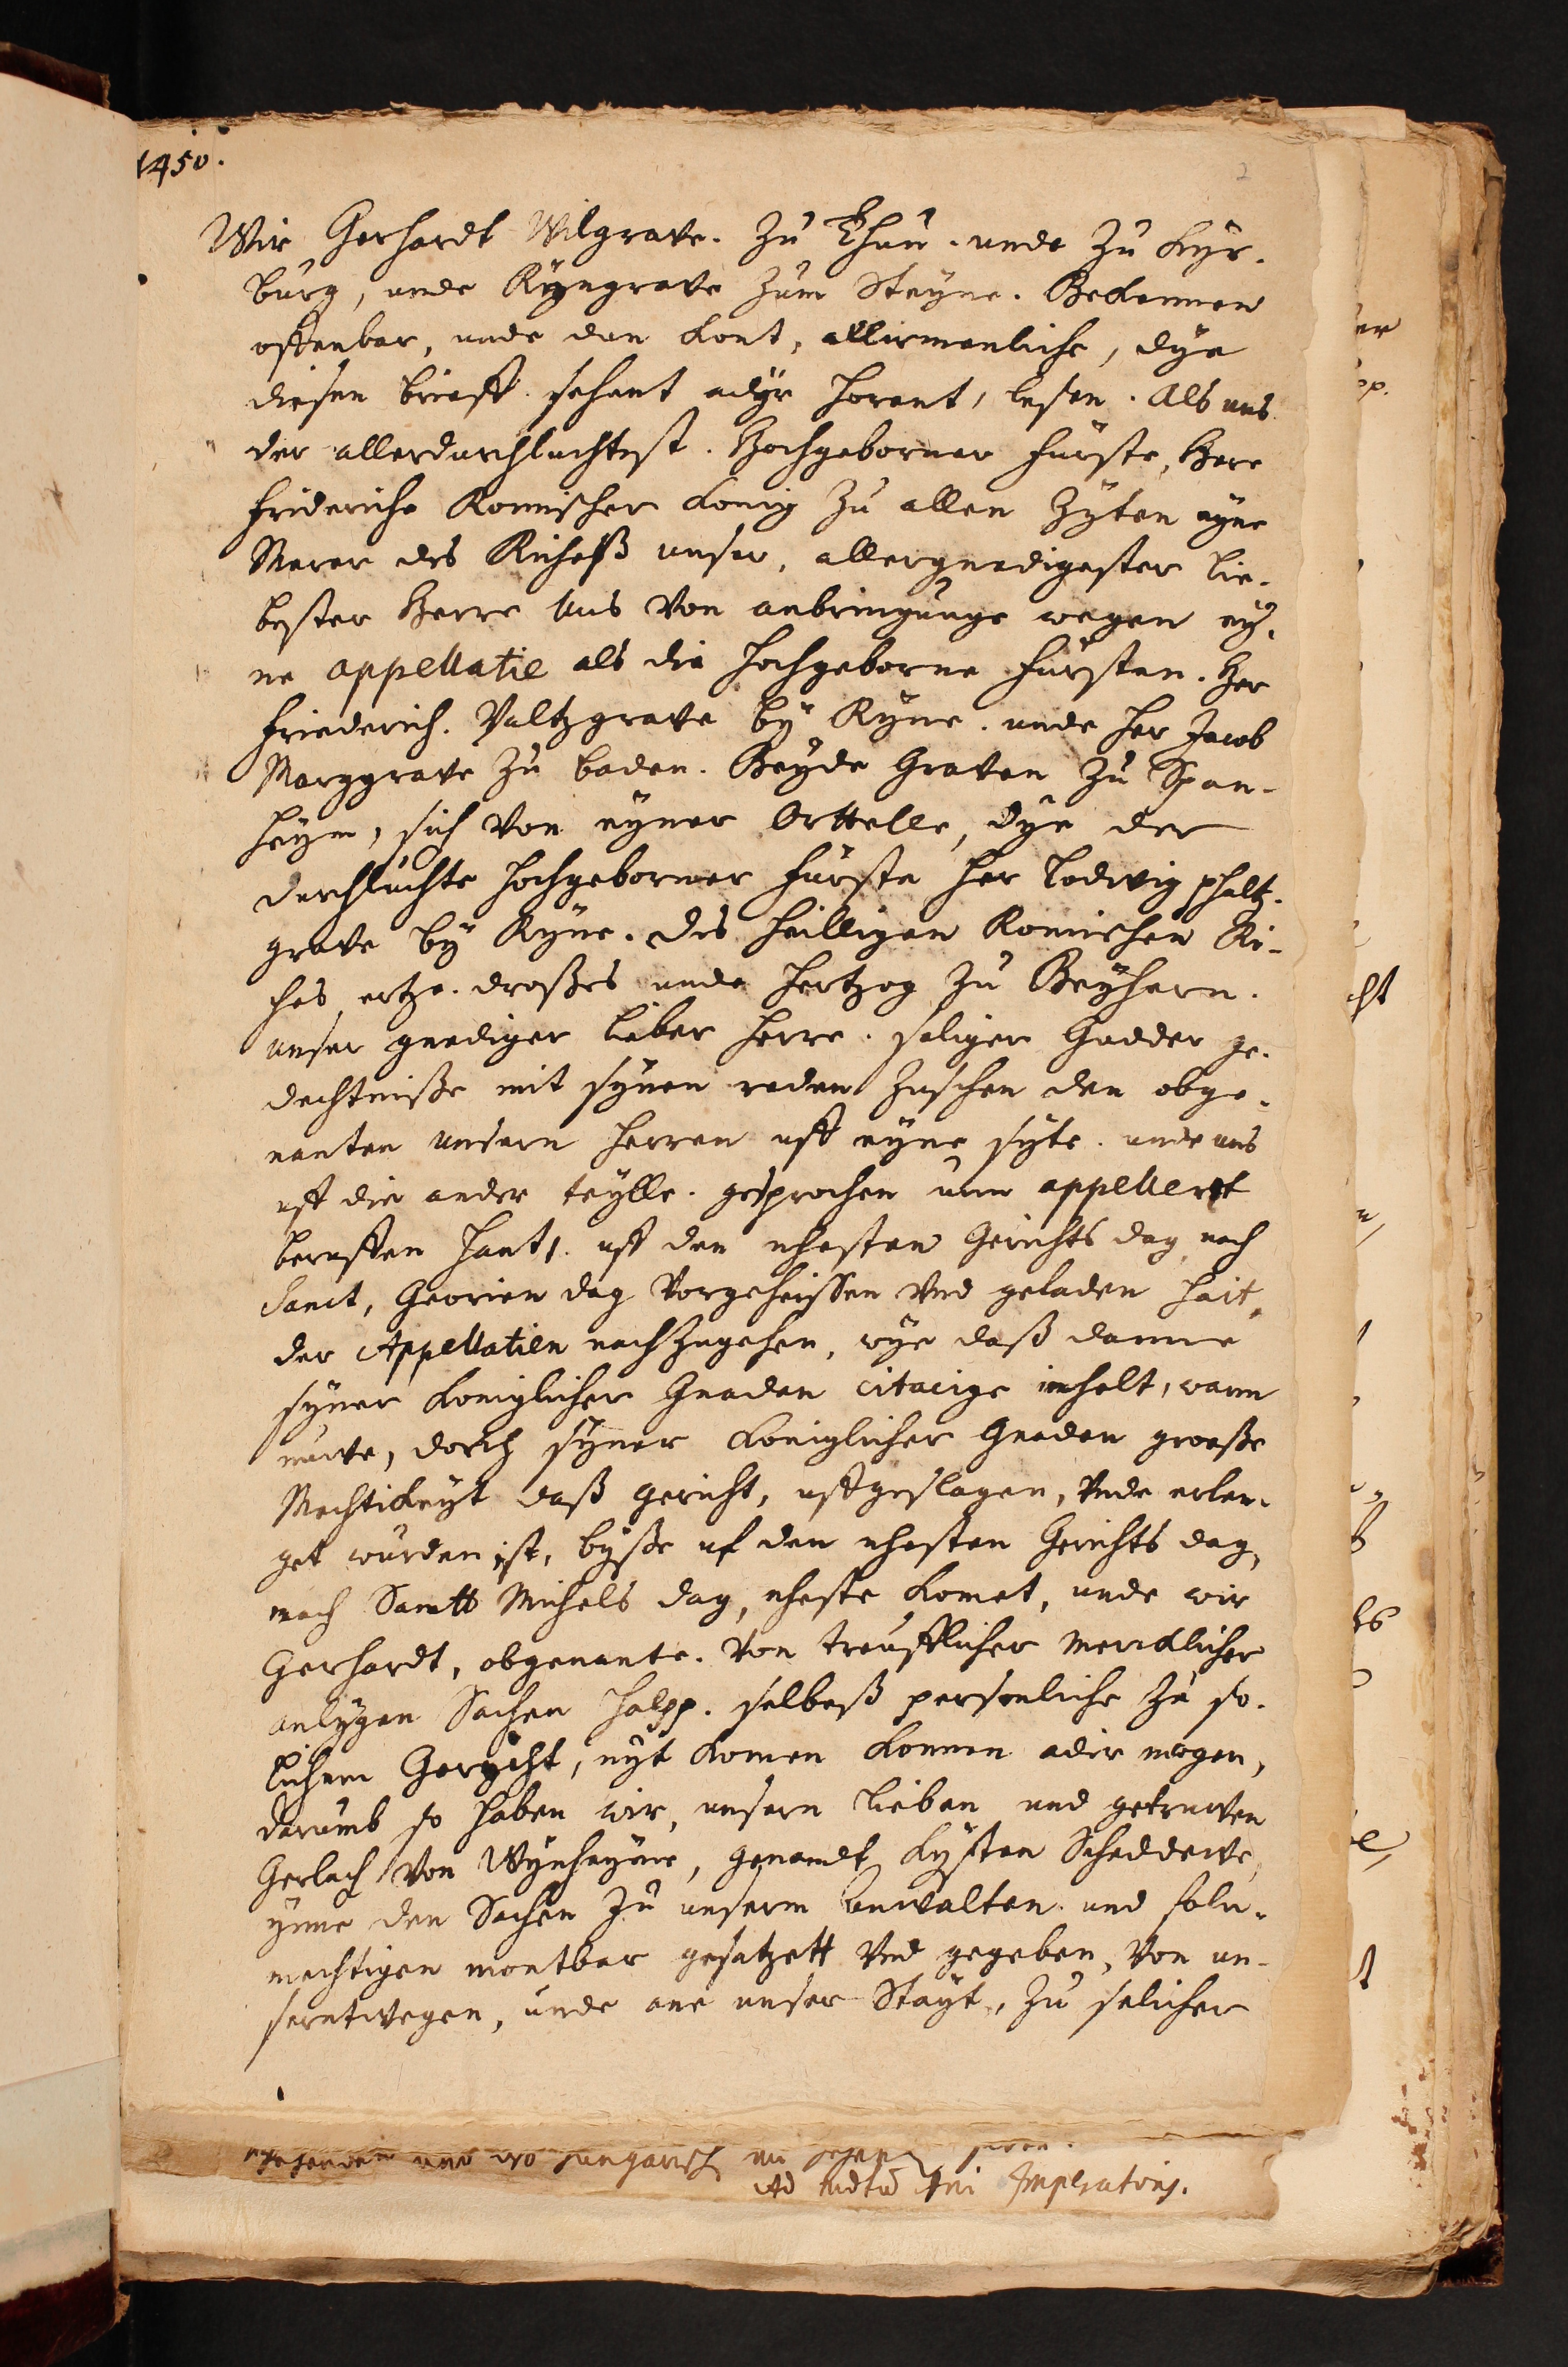 1450.
2
Wir Gerhardt Wilgrave. Zu Thun. unde Zu Kyr-
burg, unde Ryngrave Zum Steyne. Bekennen
offenbar, unde dun kont, allirmenliche, dye
diesen brieff sehent adyr horent, lesen. Als uns
der allerdurchluchtest. Hochgeborner fürste, Here
friderich Romischer konig Zu allen Zyten eyne
Merer des Richeß unser, allergnedigester lie-
bester Herre Uns von anbringunge wegen ey-
ne appellatie als die hochgeborne fürsten. Her
friederich. Paltzgrave by Ryne. unde her Jacob
Marggrave Zu baden. Beyde Graven Zu Span-
heym, sich von eyner Orttelle, dye der
durchluchte hochgeborner fürste her Lodwig phaltz-
grave by Ryne. des heilligen Romischen Ri-
ches ertze. droßes unde hertzog Zu Beyhern.
unser gnediger lieber herre. seliger Gudder ge-
dechtniße mit synen reden Zuschen den obge-
nanten unsern herren uff eyne syte. unde uns
uff die ander teylle. gesprochen unn appellert
beruffen hant, uff den nhesten Gerichts dag nach
Sanct, Georien dag vorgeheissen Und geladen hait,
der Appellatien nachZugehen, wye daß danne
syner koniglicher Gnaden citacige inhelt, wann
nuwe, dorch syner koniglicher Gnaden große
Mechtickeyt daß gericht, uffgeslagen, Unde erlen-
get wurden ist, byße uf den nhesten Gerichts dag,
nach Sanctt Michels dag, nheste komet, unde wir
Gerhardt, obgenante. Von trefflicher mercklicher
anlygen Sachen halpp. selbeß personliche Zu so-
lichem Gerycht, nyt komen konnen adir mogen,
Darumb so haben wir, unsern lieben und getruwen
Gerlach Von Wynheyme, genandt
ynne den Sachen Zu unserm anwalten und foln-
mechtigen montbar gesatzett Und gegeben, Von un-
serntwegen, unde ane unser Stayt, Zu selicher
und wo
Ad Imperatoris.